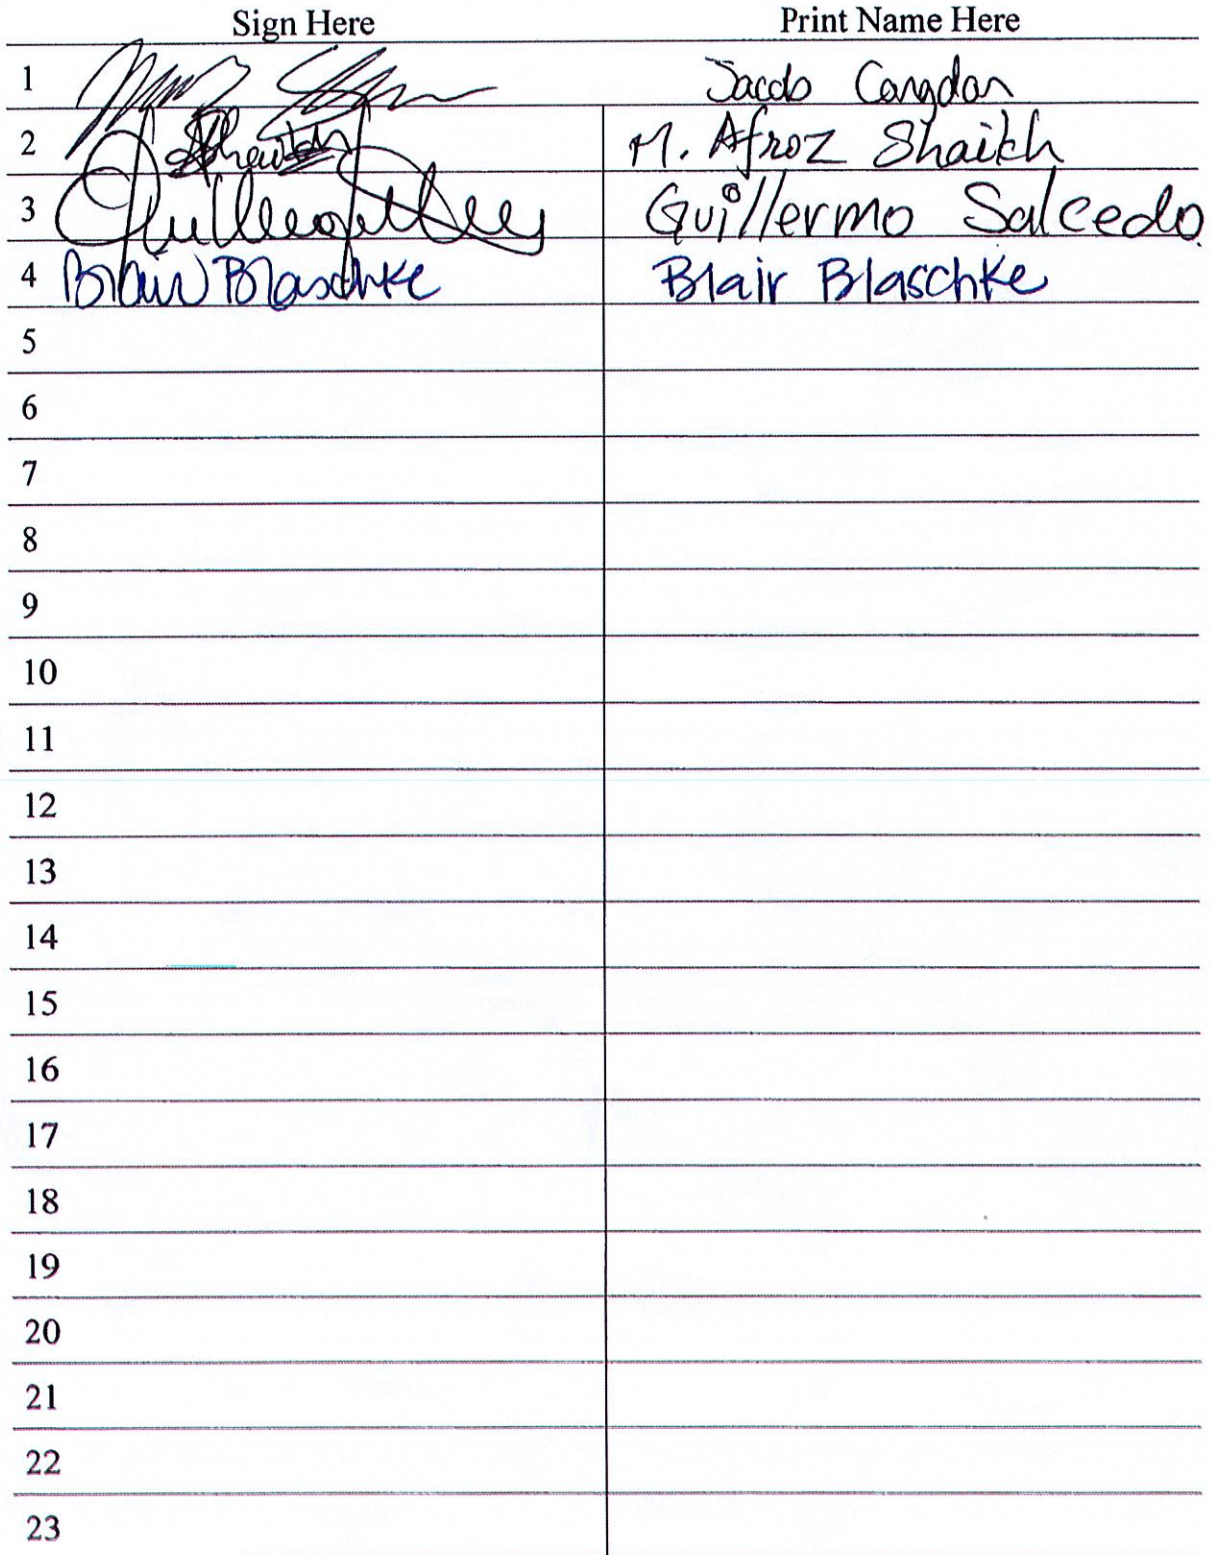 Sign Here Print Name Here
1 Jacob Congdon
2 Shaikh M. Afroz Shaikh
3 Guillermo Salcedo
4 Blair Blaschke Blair Blaschke
5
6
7
8
9
10
11
12
13
14
15
16
17
18
19
20
21
22
23